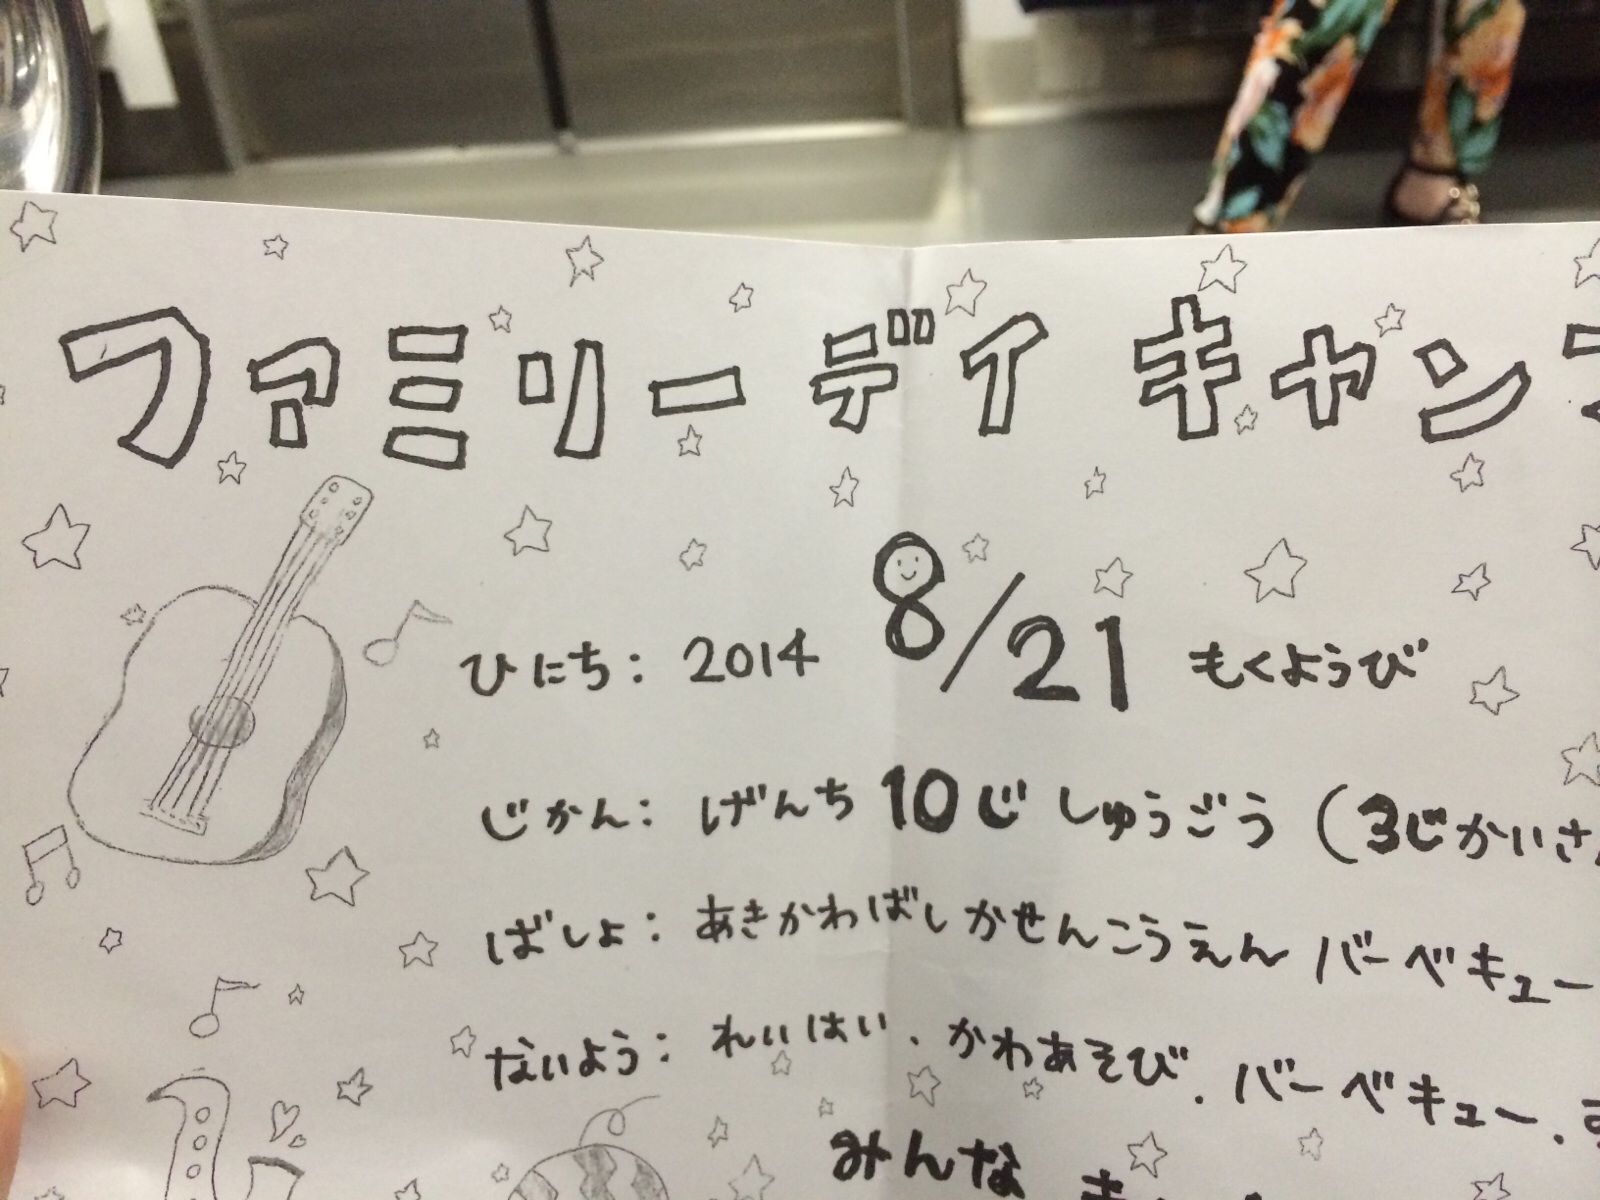 ファミリーデイ キャン
ひにち: 2014 8/21 もくようび
じかん: げんち 10じ しゅうごう (3じかいさ
ばしょ: あきかわばし かせんこうえん バーベキュー
ないよう: れいはい、かわあそび、バーベキュー、
みんな